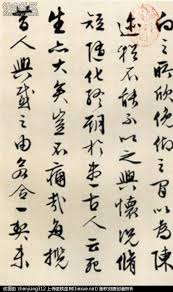 向之所欣俛仰之間以為陳
迹猶不能不以之興懷況脩
短隨化終期於盡古人云死
生亦大矣豈不痛哉每攬
昔人興感之由若合一契未
zhenjiang312